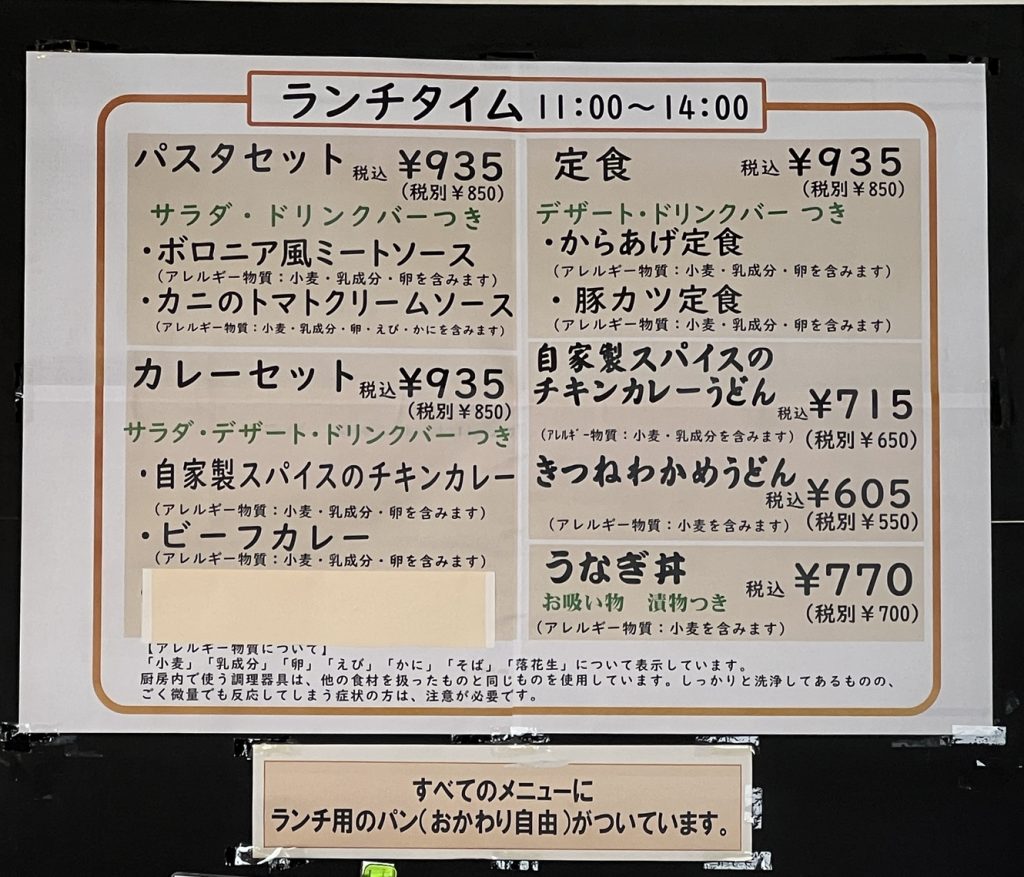 ランチタイム 11:00〜14:00
パスタセット 税込 ¥935
(税別¥850)
サラダ・ドリンクバーつき
・ボロニア風ミートソース
(アレルギー物質：小麦・乳成分・卵を含みます)
・カニのトマトクリームソース
(アレルギー物質：小麦・乳成分・卵・えび・かにを含みます)
カレーセット 税込 ¥935
(税別¥850)
サラダ・デザート・ドリンクバーつき
・自家製スパイスのチキンカレー
(アレルギー物質：小麦・乳成分・卵を含みます)
・ビーフカレー
(アレルギー物質：小麦・乳成分・卵を含みます)
定食 税込 ¥935
(税別¥850)
デザート・ドリンクバー つき
・からあげ定食
(アレルギー物質：小麦・乳成分・卵を含みます)
・豚カツ定食
(アレルギー物質：小麦・乳成分・卵を含みます)
自家製スパイスの
チキンカレーうどん 税込 ¥715
(ｱﾚﾙｷﾞｰ物質：小麦・乳成分を含みます) (税別¥650)
きつねわかめうどん
税込 ¥605
(アレルギー物質：小麦を含みます) (税別¥550)
うなぎ丼 税込 ¥770
お吸い物 漬物つき (税別¥700)
(アレルギー物質：小麦を含みます)
【アレルギー物質について】
「小麦」「乳成分」「卵」「えび」「かに」「そば」「落花生」について表示しています。
厨房内で使う調理器具は、他の食材を扱ったものと同じものを使用しています。しっかりと洗浄してあるものの、
ごく微量でも反応してしまう症状の方は、注意が必要です。
すべてのメニューに
ランチ用のパン(おかわり自由)がついています。